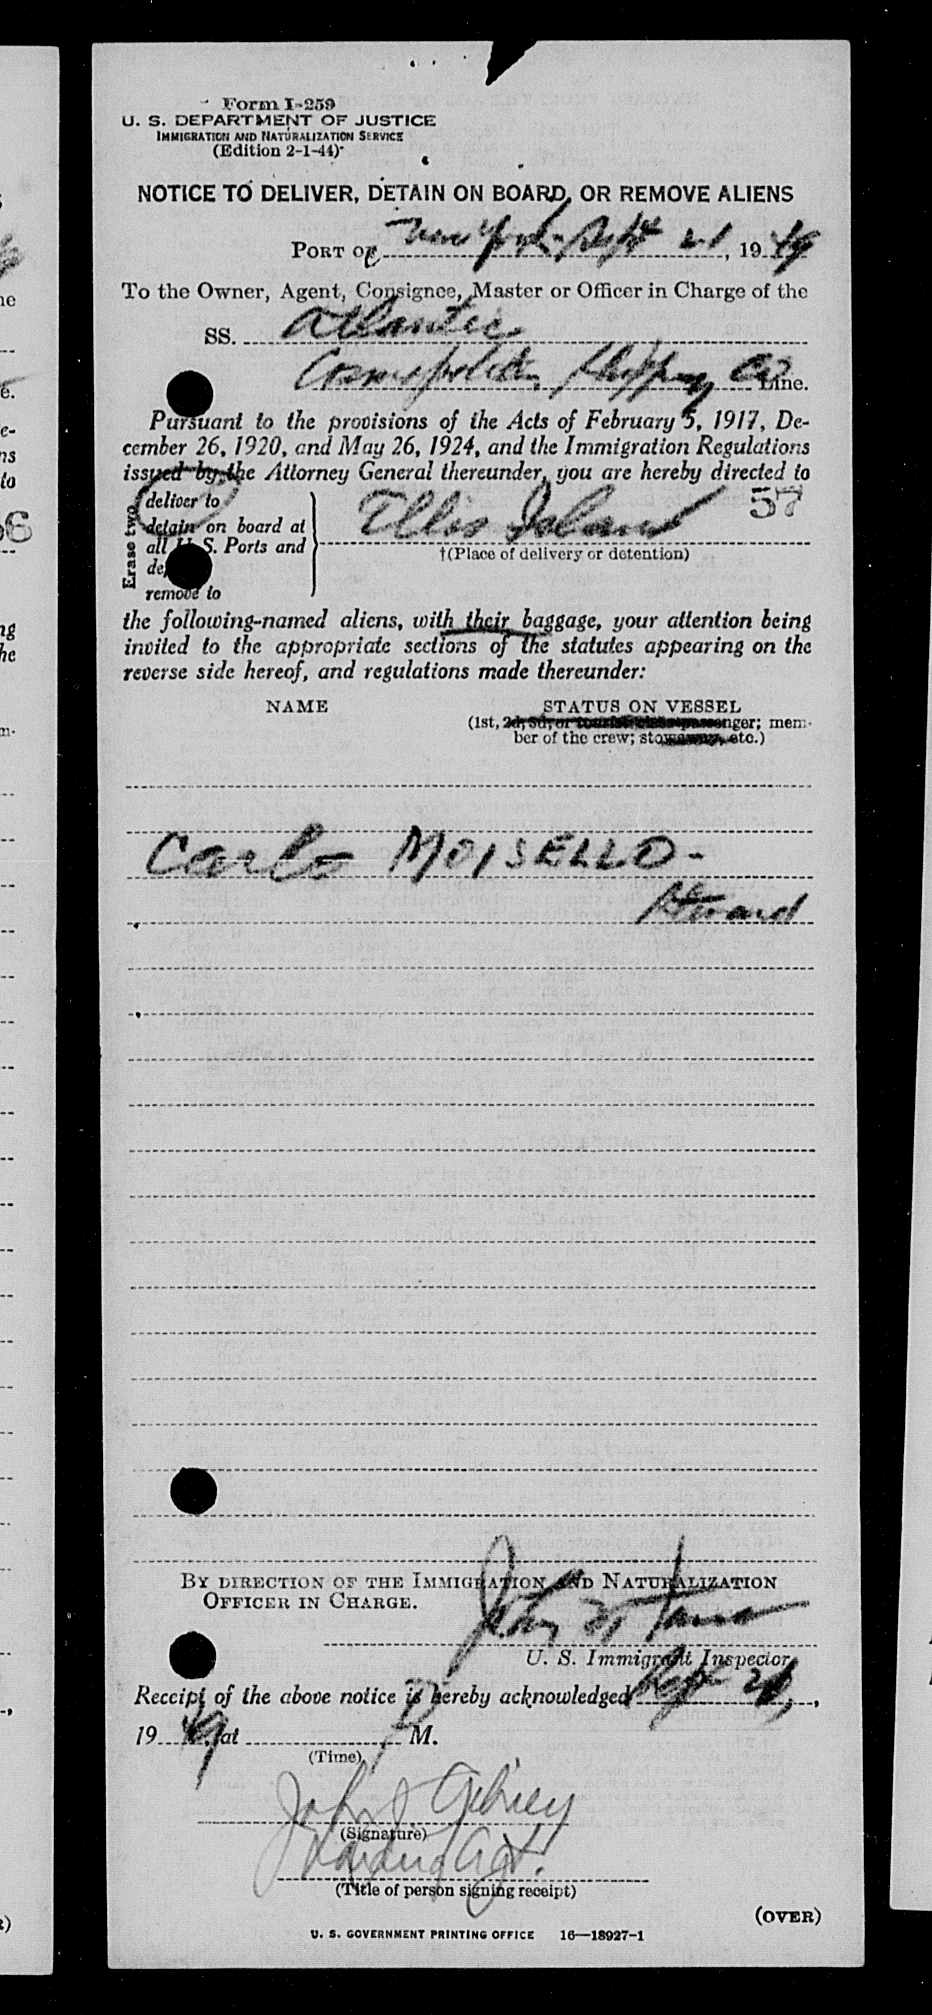 Form I-259
U. S. DEPARTMENT OF JUSTICE
IMMIGRATION AND NATURALIZATION SERVICE
(Edition 2-1-44)
NOTICE TO DELIVER, DETAIN ON BOARD, OR REMOVE ALIENS
PORT OF New York, Sept 21, 1949
To the Owner, Agent, Consignee, Master or Officer in Charge of the
SS. Atlantic
Cosmopolitan Shipping Co Line.
Pursuant to the provisions of the Acts of February 5, 1917, De-
cember 26, 1920, and May 26, 1924, and the Immigration Regulations
issued by the Attorney General thereunder, you are hereby directed to
Erase two
deliver to
detain on board at
all U. S. Ports and
remove to
Ellis Island 57
†(Place of delivery or detention)
the following-named aliens, with their baggage, your attention being
invited to the appropriate sections of the statutes appearing on the
reverse side hereof, and regulations made thereunder:
NAME STATUS ON VESSEL
(1st, 2d, 3d, or tourist class passenger; mem-
ber of the crew; stowaway, etc.)
Carlo MOISELLO -
BY DIRECTION OF THE IMMIGRATION AND NATURALIZATION
OFFICER IN CHARGE.
U. S. Immigrant Inspector
Receipt of the above notice is hereby acknowledged Sept 21,,
1949, at P M.
(Time)
John J Gibney
(Signature)
Agt.
(Title of person signing receipt)
(OVER)
U. S. GOVERNMENT PRINTING OFFICE 16—18927-1